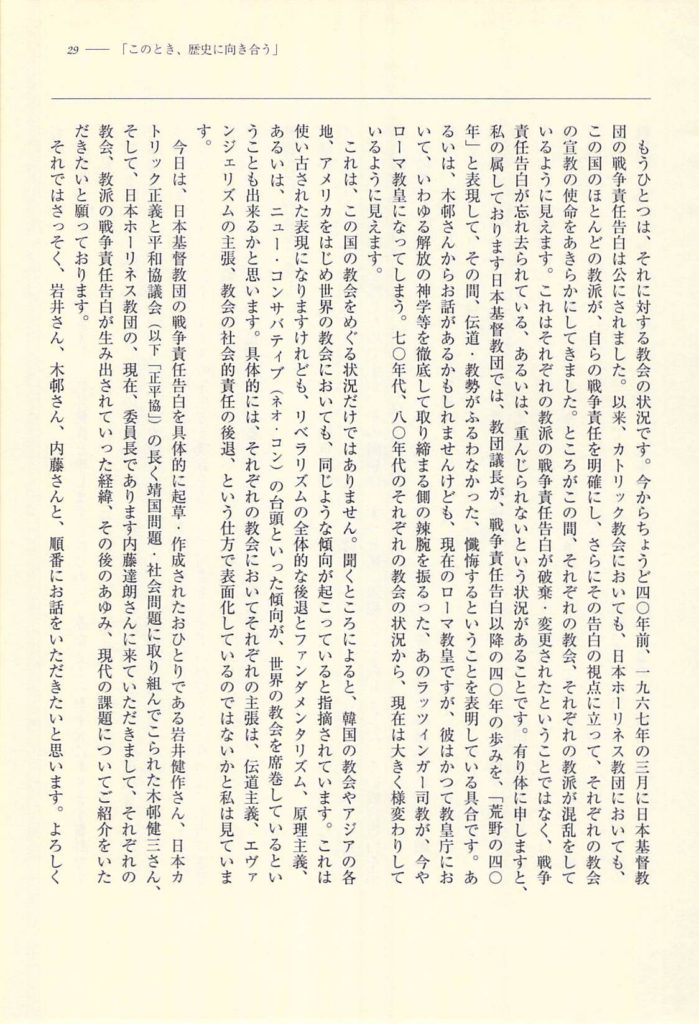 29 ── 「このとき、歴史に向き合う」
もうひとつは、それに対する教会の状況です。今からちょうど四〇年前、一九六七年の三月に日本基督教
団の戦争責任告白は公にされました。以来、カトリック教会においても、日本ホーリネス教団においても、
この国のほとんどの教派が、自らの戦争責任を明確にし、さらにその告白の視点に立って、それぞれの教会
の宣教の使命をあきらかにしてきました。ところがこの間、それぞれの教会、それぞれの教派が混乱をして
いるように見えます。これはそれぞれの教派の戦争責任告白が破棄・変更されたということではなく、戦争
責任告白が忘れ去られている、あるいは、重んじられないという状況があることです。有り体に申しますと、
私の属しております日本基督教団では、教団議長が、戦争責任告白以降の四〇年の歩みを、「荒野の四〇
年」と表現して、その間、伝道・教勢がふるわなかった、懺悔するということを表明している具合です。あ
るいは、木邨さんからお話があるかもしれませんけども、現在のローマ教皇ですが、彼はかつて教皇庁にお
いて、いわゆる解放の神学等を徹底して取り締まる側の辣腕を振るった、あのラッツィンガー司教が、今や
ローマ教皇になってしまう。七〇年代、八〇年代のそれぞれの教会の状況から、現在は大きく様変わりして
いるように見えます。
これは、この国の教会をめぐる状況だけではありません。聞くところによると、韓国の教会やアジアの各
地、アメリカをはじめ世界の教会においても、同じような傾向が起こっていると指摘されています。これは
使い古された表現になりますけれども、リベラリズムの全体的な後退とファンダメンタリズム、原理主義、
あるいは、ニュー・コンサバティブ（ネオ・コン）の台頭といった傾向が、世界の教会を席巻しているとい
うことも出来るかと思います。具体的には、それぞれの教会においてそれぞれの主張は、伝道主義、エヴァ
ンジェリズムの主張、教会の社会的責任の後退、という仕方で表面化しているのではないかと私は見ていま
す。
今日は、日本基督教団の戦争責任告白を具体的に起草・作成されたおひとりである岩井健作さん、日本カ
トリック正義と平和協議会（以下「正平協」）の長く靖国問題・社会問題に取り組んでこられた木邨健三さん、
そして、日本ホーリネス教団の、現在、委員長であります内藤達朗さんに来ていただきまして、それぞれの
教会、教派の戦争責任告白が生み出されていった経緯、その後のあゆみ、現代の課題についてご紹介をいた
だきたいと願っております。
それではさっそく、岩井さん、木邨さん、内藤さんと、順番にお話をいただきたいと思います。よろしく